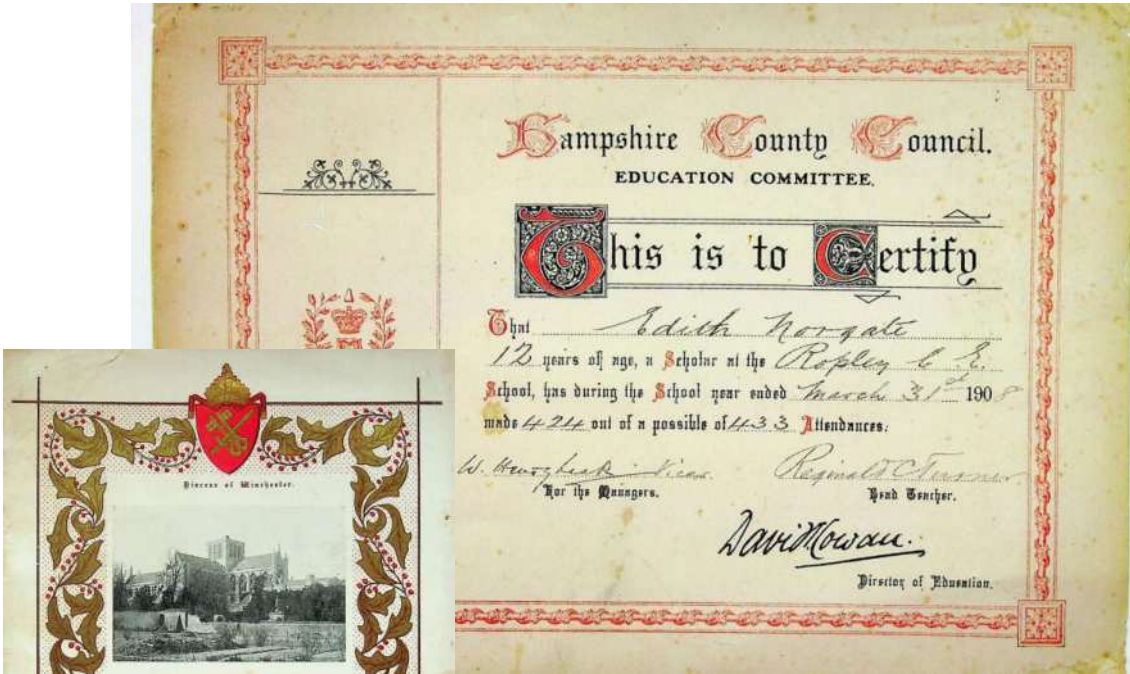 Hampshire County Council.
EDUCATION COMMITTEE.
This is to Certify
That Edith Norgate
12 years of age, a Scholar at the Ropley C. E.
School, has during the School year ended March 31st 1908
made 424 out of a possible of 433 Attendances.
W. Vicar Reginald C Turner
For the Managers. Head Teacher.
David Cowan.
Director of Education.
Diocese of Winchester.